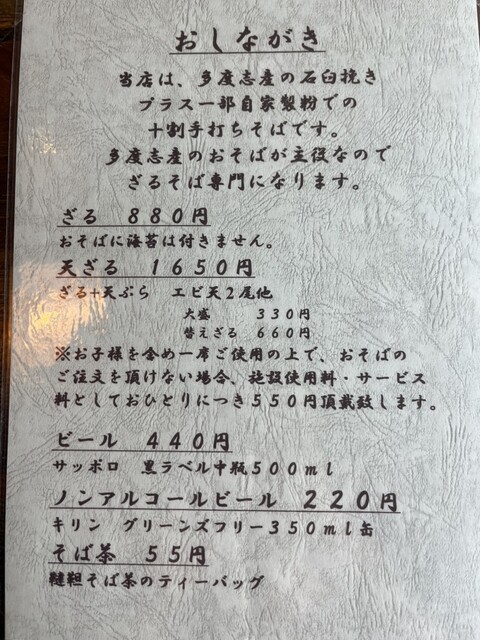 おしながき
当店は、多度志産の石臼挽き
プラス一部自家製粉での
十割手打ちそばです。
多度志産のおそばが主役なので
ざるそば専門になります。
ざる　８８０円
おそばに海苔は付きません。
天ざる　１６５０円
ざる+天ぷら　エビ天２尾他
大盛　３３０円
替えざる　６６０円
※お子様を含め一席ご使用の上で、おそばの
ご注文を頂けない場合、施設使用料・サービス
料としておひとりにつき５５０円頂戴致します。
ビール　４４０円
サッポロ　黒ラベル中瓶５００ｍｌ
ノンアルコールビール　２２０円
キリン　グリーンズフリー３５０ｍｌ缶
そば茶　５５円
韃靼そば茶のティーバッグ